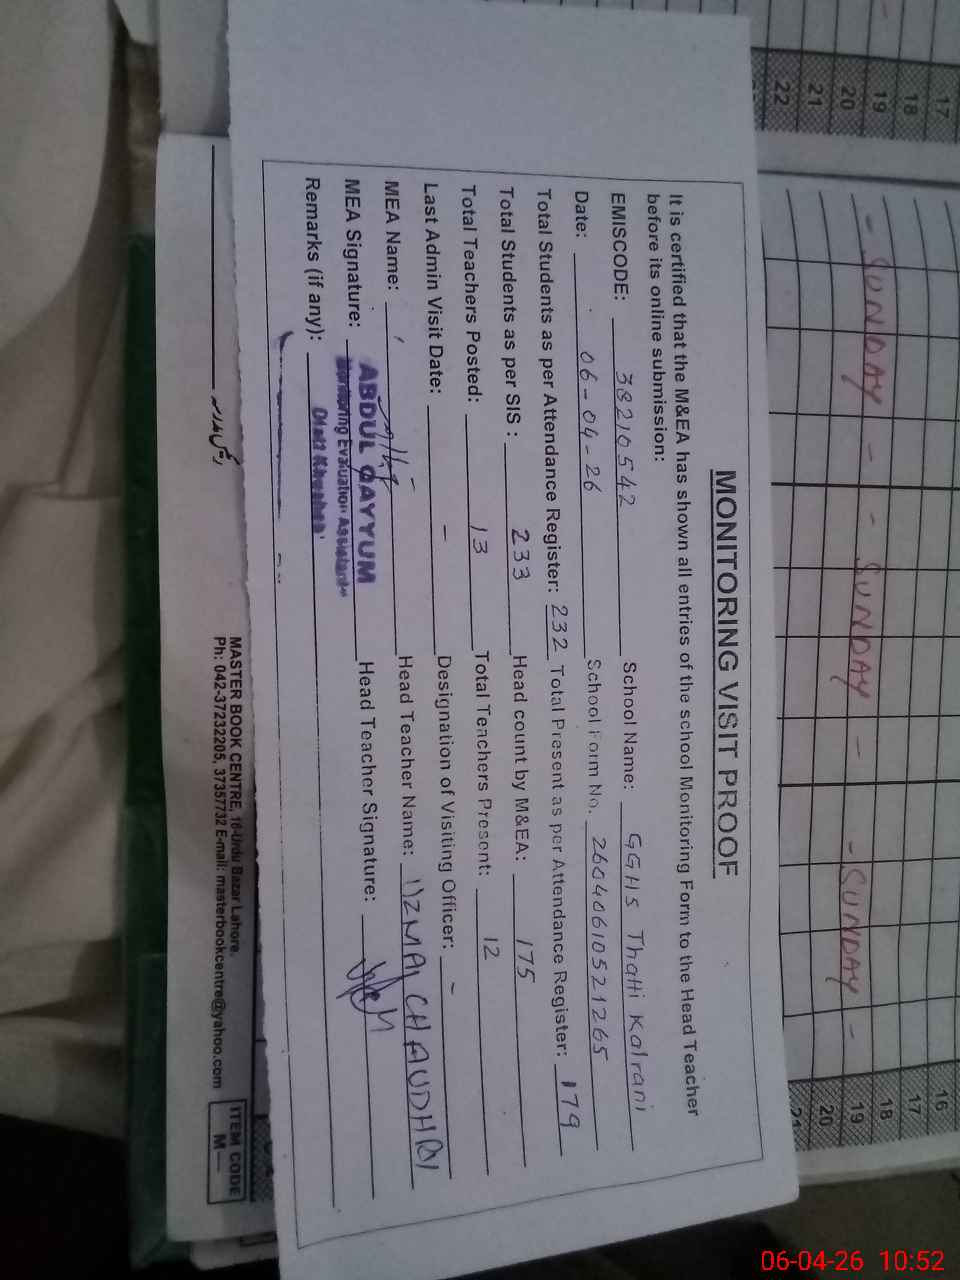 MONITORING VISIT PROOF
It is certified that the M&EA has shown all entries of the school Monitoring Form to the Head Teacher
before its online submission:
EMISCODE: 38210542 School Name: GGHS Thatti Kalrani
Date: 06-04-26 School Form No. 26040610521265
Total Students as per Attendance Register: 232 Total Present as per Attendance Register: 179
Total Students as per SIS: 233 Head count by M&EA: 175
Total Teachers Posted: 13 Total Teachers Present: 12
Last Admin Visit Date: - Designation of Visiting Officer: -
MEA Name: Head Teacher Name: UZMA CHAUDHRY
MEA Signature: ABDUL QAYYUM Head Teacher Signature:
Monitoring Evaluation Assistant
Remarks (if any): Distt Khushab
MASTER BOOK CENTRE, 16-Urdu Bazar Lahore.
Ph: 042-37232205, 37357732 E-mail: masterbookcentre@yahoo.com
ITEM CODE
M-
17
18
19
20
21
22
- SUNDAY -
- SUNDAY -
- SUNDAY -
16
17
18
19
20
21
06-04-26 10:52